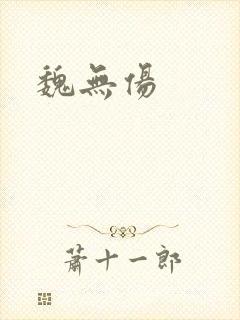 魏無傷
蕭十一郎